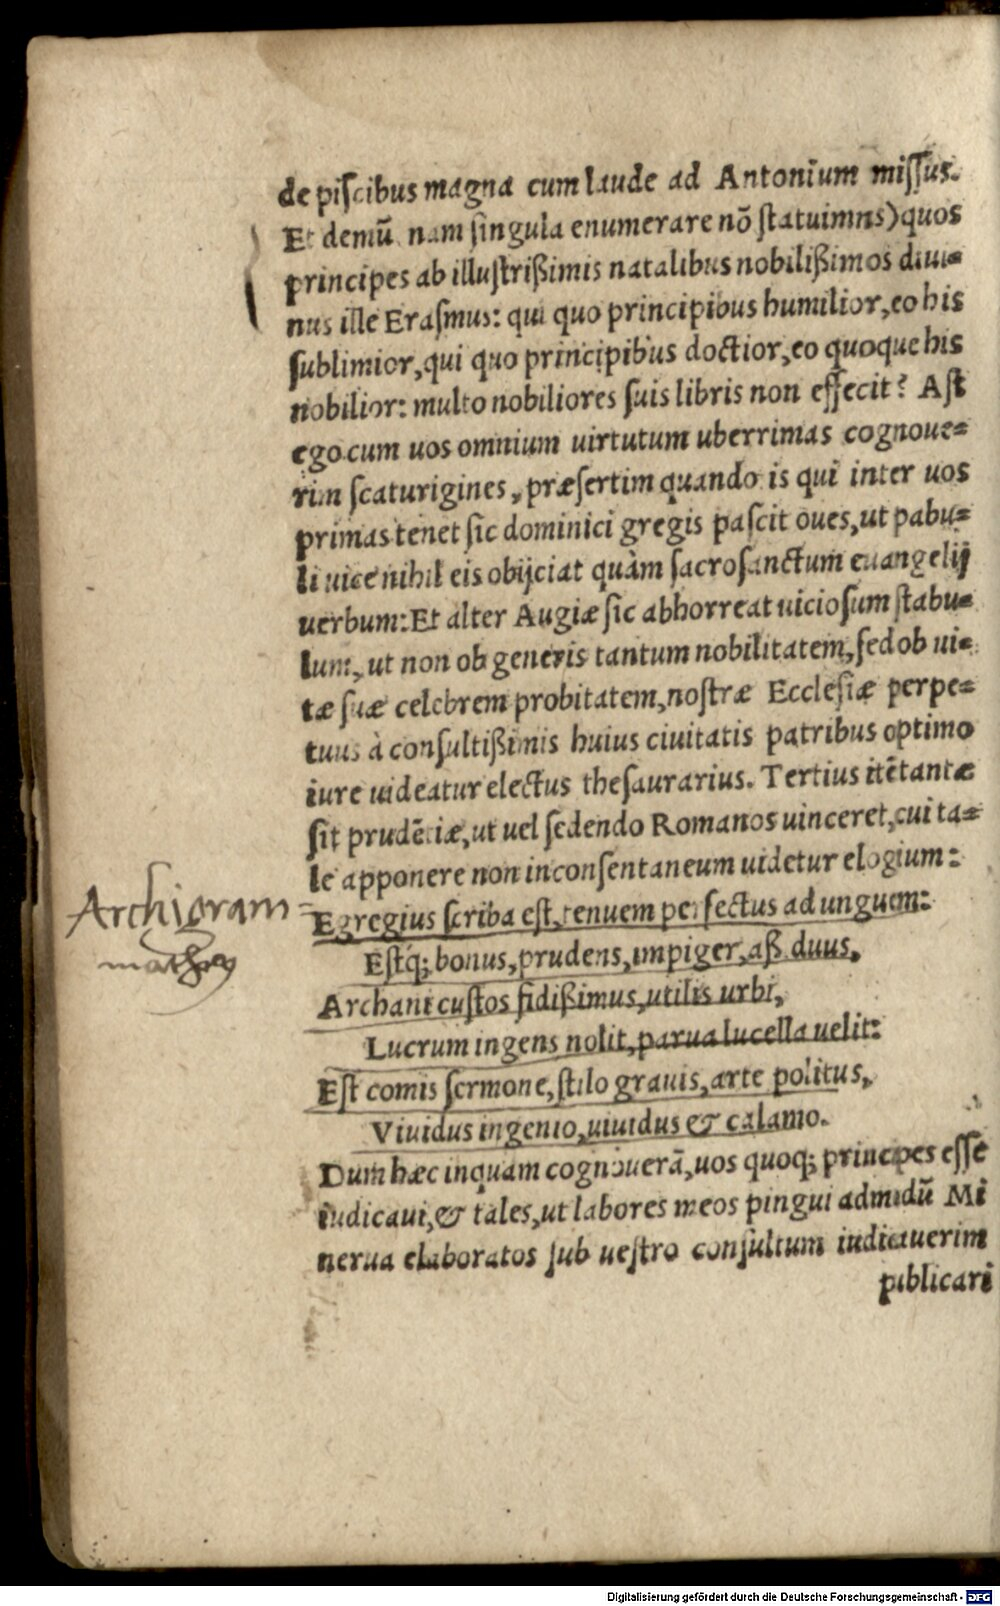 de piſcibus magna cum laude ad Antonium miſſus.
Et demũ nam ſingula enumerare nõ ſtatuimns) quos
principes ab illuſtriſſimis natalibus nobiliſſimos diui=
nus ille Eraſmus: qui quo principibus humilior, eo his
ſublimior, qui quo principibus doctior, eo quoque his
nobilior: multo nobiliores ſuis libris non effecit? Aſt
ego cum uos omnium uirtutum uberrimas cognoue=
rim ſcaturigines, præſertim quando is qui inter uos
primas tenet ſic dominici gregis paſcit oues, ut pabu=
li uice nihil eis obijciat quàm ſacroſanctum euangelij
uerbum: Et alter Augiæ ſic abhorreat uicioſum ſtabu=
lum, ut non ob generis tantum nobilitatem, ſed ob ui=
tæ ſuæ celebrem probitatem, noſtræ Eccleſiæ perpe=
tuus à conſultiſſimis huius ciuitatis patribus optimo
iure uideatur electus theſaurarius. Tertius itẽ tantæ
ſit prudẽtiæ, ut uel ſedendo Romanos uinceret, cui ta=
le apponere non inconſentaneum uidetur elogium:
Archigram=
matheus
Egregius ſcriba eſt, tenuem perfectus ad unguem:
Eſtq; bonus, prudens, impiger, aſſiduus,
Archani cuſtos fidiſſimus, utilis urbi,
Lucrum ingens nolit, parua lucella uelit:
Eſt comis ſermone, ſtilo grauis, arte politus,
Viuidus ingenio, uiuidus & calamo.
Dum hæc inquam cognouerã, uos quoq; principes eſſe
iudicaui, & tales, ut labores meos pingui admodũ Mi
nerua elaboratos ſub ueſtro conſultum iudicauerim
publicari
Digitalisierung gefördert durch die Deutsche Forschungsgemeinschaft - DFG